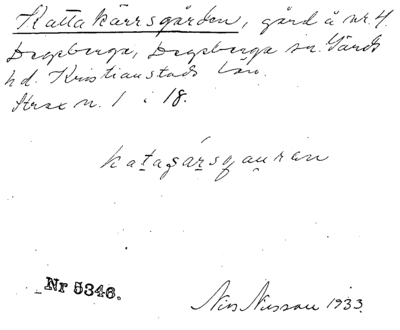 Kattakärrsgården, gård å nr. 4
Degeberga, Degeberga sn. Gärds
hd. Kristianstads län.
Strax n. 1 i 18.
katagársgauran
Nr 5346.
Nils Nilsson 1933.